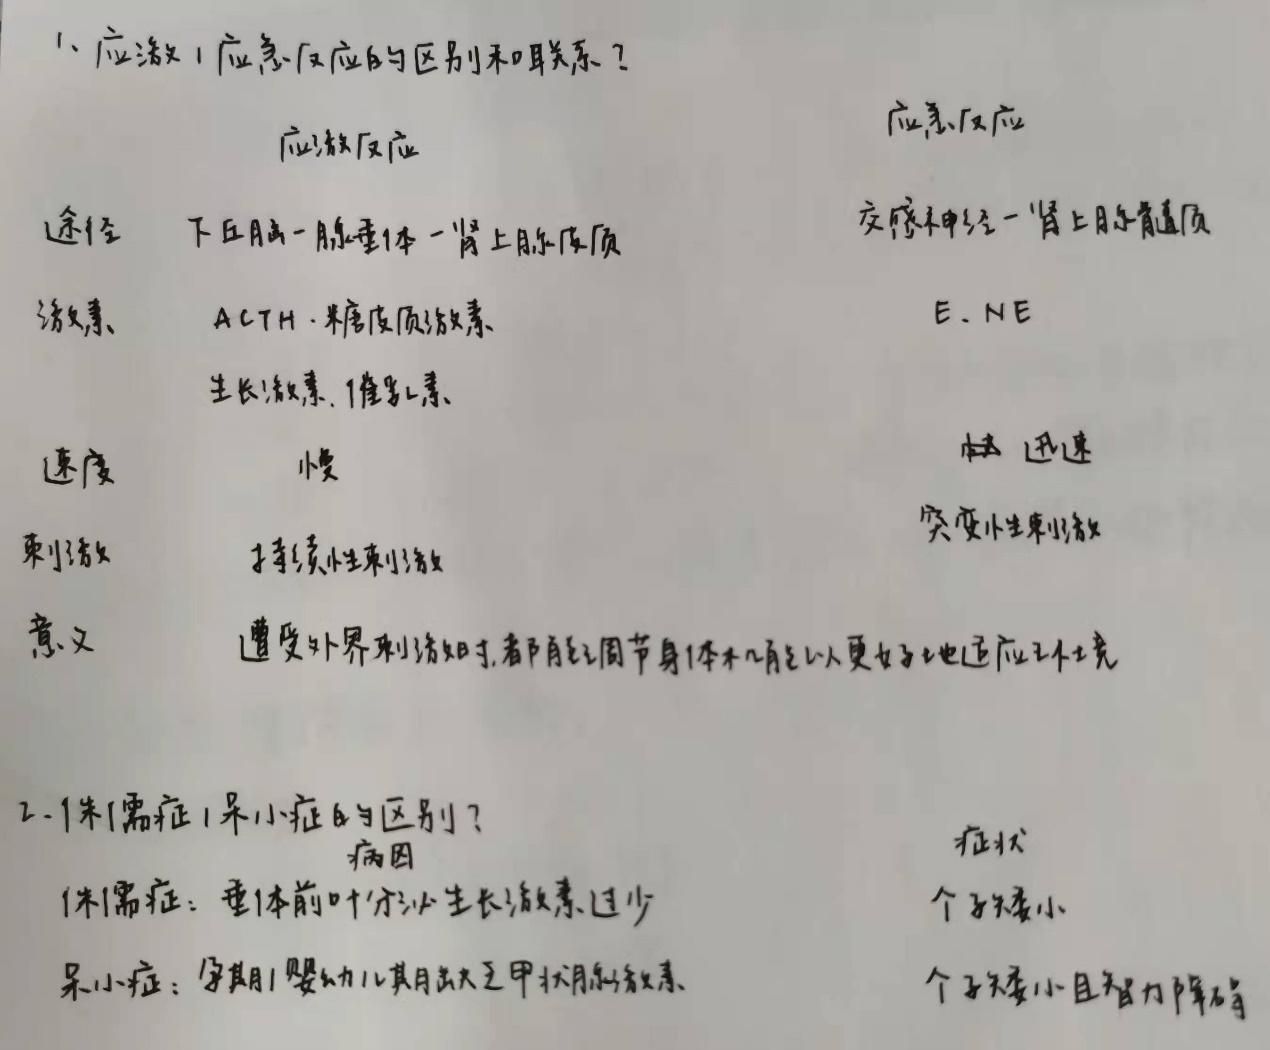 1、应激/应急反应的区别和联系?
应激反应 应急反应
途径 下丘脑-腺垂体-肾上腺皮质 交感神经-肾上腺髓质
激素 ACTH.糖皮质激素 E.NE
生长激素.催乳素
速度 慢 迅速
刺激 持续性刺激 突变性刺激
意义 遭受外界刺激时,都能调节身体机能以更好地适应环境
2.侏儒症/呆小症的区别?
病因 症状
侏儒症:垂体前叶分泌生长激素过少 个子矮小
呆小症:孕期/婴幼儿期缺乏甲状腺激素 个子矮小且智力障碍